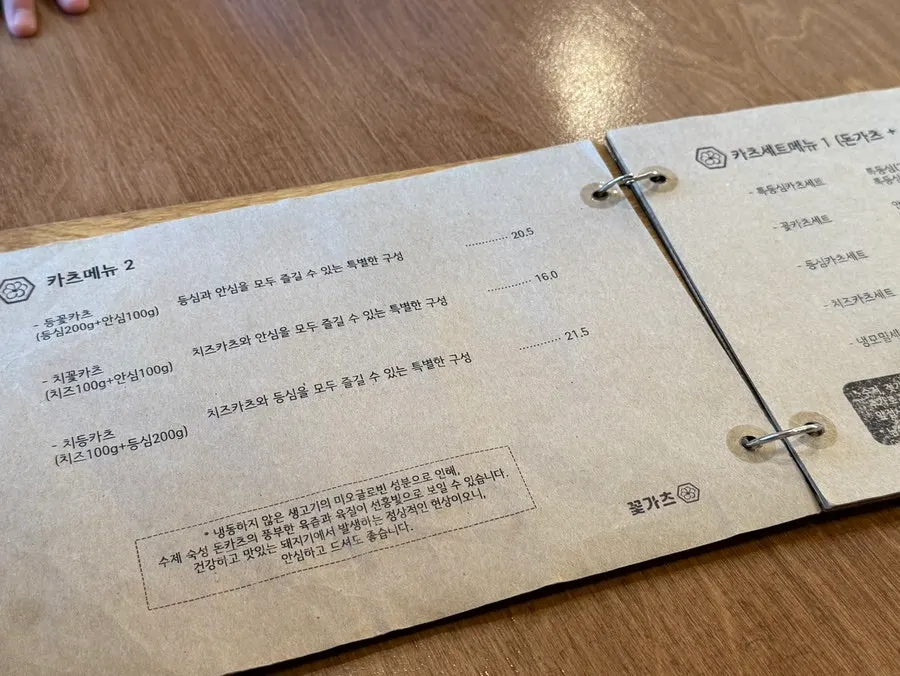 카츠메뉴 2
- 등꽃카츠 등심과 안심을 모두 즐길 수 있는 특별한 구성 ············ 20.5
(등심200g+안심100g)
- 치꽃카츠 치즈카츠와 안심을 모두 즐길 수 있는 특별한 구성 ············ 16.0
(치즈100g+안심100g)
- 치등카츠 치즈카츠와 등심을 모두 즐길 수 있는 특별한 구성 ············ 21.5
(치즈100g+등심200g)
* 냉동하지 않은 생고기의 미오글로빈 성분으로 인해,
수제 숙성 돈카츠의 풍부한 육즙과 육질이 선홍빛으로 보일 수 있습니다.
건강하고 맛있는 돼지기에서 발생하는 정상적인 현상이오니,
안심하고 드셔도 좋습니다.
꽃가츠
카츠세트메뉴 1 (돈가츠 +
- 특등심카츠세트 특등심
특등심
- 꽃카츠세트
- 등심카츠세트
- 치즈카츠세트
- 냉모밀세